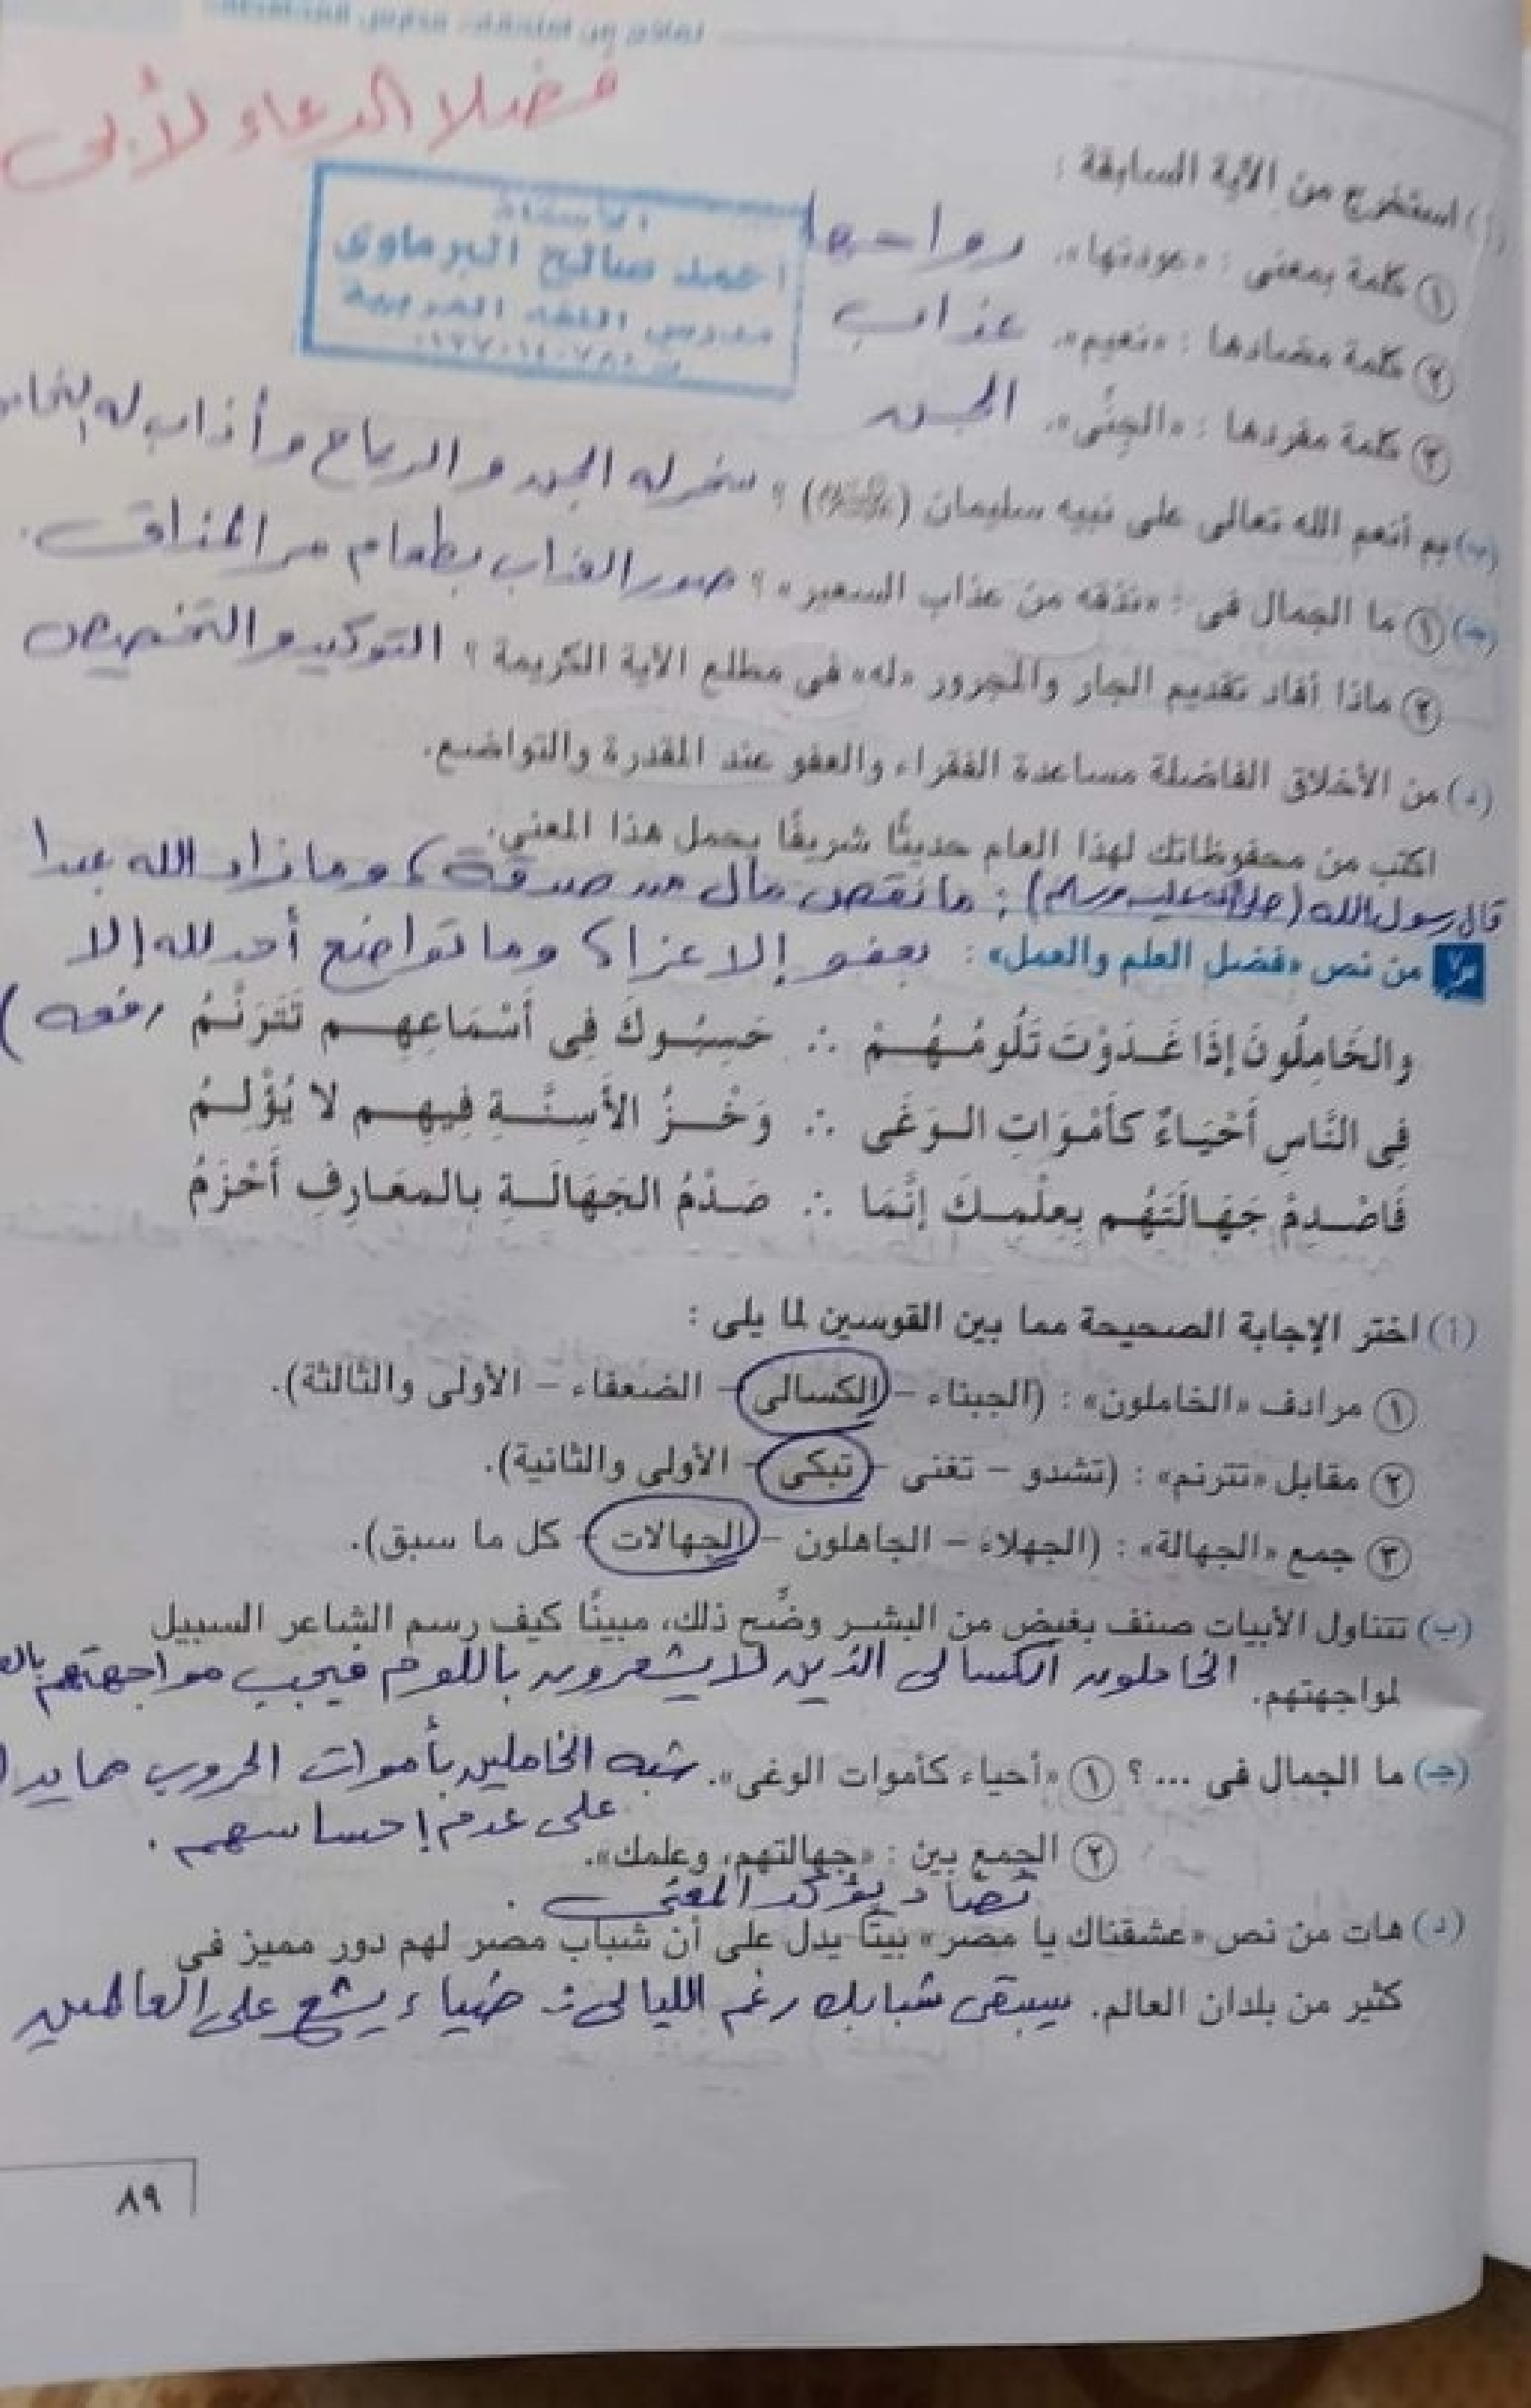 نماذج من امتحانات مدارس المحافظات
فضلا الدعاء لأبى
الأستاذ
احمد صالح البرماوى
مدرس اللغه العربية
(أ) استخرج من الآية السابقة :
١ كلمة بمعنى : «عودتها». رواحها
٢ كلمة مضادها : «نعيم». عذاب
٣ كلمة مفردها : «الجِنِّى». الجن
(ب) بم أنعم الله تعالى على نبيه سليمان ؟ سخر له الجن والرياح وأذاب له النحاس
(جـ) ١ ما الجمال فى : «نذقه من عذاب السعير» ؟ صور العذاب بطعام مر المذاق .
٢ ماذا أفاد تقديم الجار والمجرور «له» فى مطلع الآية الكريمة ؟ التوكيد والتخصيص
(د) من الأخلاق الفاضلة مساعدة الفقراء والعفو عند المقدرة والتواضع.
اكتب من محفوظاتك لهذا العام حديثًا شريفًا يحمل هذا المعنى.
قال رسول الله (صلى الله عليه وسلم) : ما نقص مال من صدقة ، وما زاد الله عبدا
من نص «فضل العلم والعمل» : بعفو إلا عزا ، وما تواضع أحد لله إلا
والخَامِلُونَ إذَا غَدَوْتَ تَلُومُهُمْ ∴ حَسِبُوكَ فِى أَسْمَاعِهِم تَتَرَنَّمُ رفعه )
فِى النَّاسِ أَحْيَاءٌ كَأَمْوَاتِ الوَغَى ∴ وَخْزُ الأَسِنَّةِ فِيهِم لا يُؤْلِمُ
فَاصْدِمْ جَهَالَتَهُم بِعِلْمِكَ إنَّمَا ∴ صَدْمُ الجَهَالَةِ بِالمعَارِفِ أَحْزَمُ
(أ) اختر الإجابة الصحيحة مما بين القوسين لما يلى :
١ مرادف «الخاملون» : (الجبناء – الكسالى – الضعفاء – الأولى والثالثة).
٢ مقابل «تترنم» : (تشدو – تغنى – تبكى – الأولى والثانية).
٣ جمع «الجهالة» : (الجهلاء – الجاهلون – الجهالات – كل ما سبق).
(ب) تتناول الأبيات صنف بغيض من البشر وضِّح ذلك، مبينًا كيف رسم الشاعر السبيل
لمواجهتهم. الخاملون الكسالى الذين لا يشعرون باللوم فيجب مواجهتهم
(جـ) ما الجمال فى ... ؟ ١ «أحياء كأموات الوغى». شبه الخاملين بأموات الحروب مما يدل
على عدم إحساسهم .
٢ الجمع بين : «جهالتهم، وعلمك».
تضاد يؤكد المعنى .
(د) هات من نص «عشقناك يا مصر» بيتًا يدل على أن شباب مصر لهم دور مميز فى
كثير من بلدان العالم. سيبقى شبابك رغم الليالى ∴ ضياء يشع على العالمين
٨٩